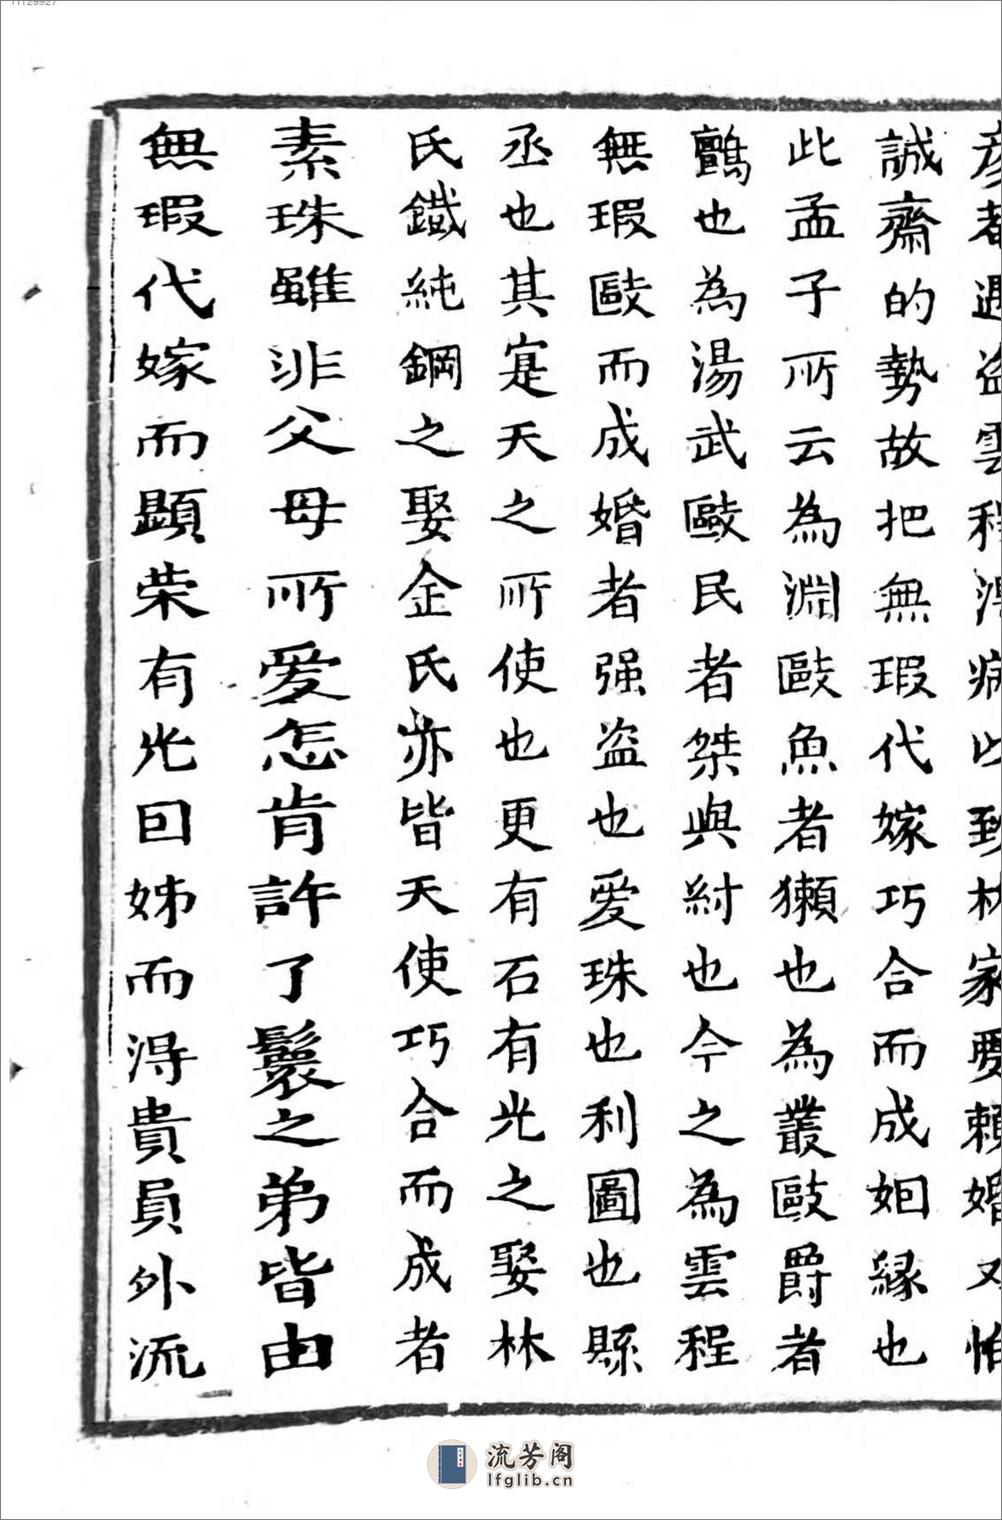 彦者遇盜雲程得病以致林家要賴婚又怕
誠齋的勢故把無瑕代嫁巧合而成姻緣也
此孟子所云為淵敺魚者獺也為叢敺爵者
鸇也為湯武敺民者桀與紂也今之為雲程
無瑕敺而成婚者强盜也愛珠也利圖也縣
丞也其寔天之所使也更有石有光之娶林
氏鐵純鋼之娶金氏亦皆天使巧合而成者
素珠雖非父母所愛怎肯許了鬟之弟皆由
無瑕代嫁而顯荣有光回姊而得貴員外流
流芳阁
lfglib.cn
11129927